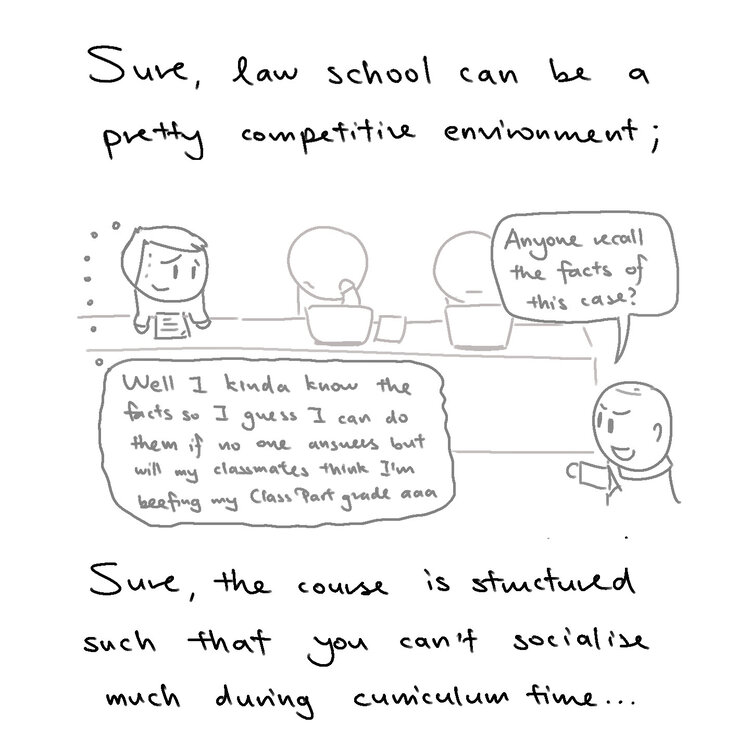 Sure, law school can be a
pretty competitive environment;
Anyone recall
the facts of
this case?
Well I kinda know the
facts so I guess I can do
them if no one answers but
will my classmates think I'm
beefing my Class Part grade aaa
Sure, the course is structured
such that you can't socialise
much during curriculum time...